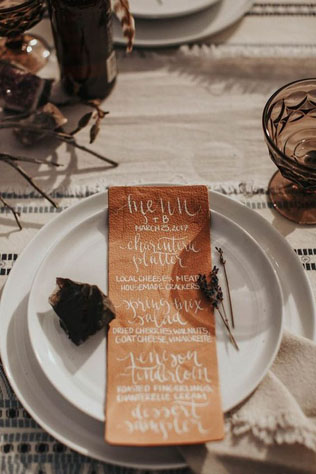 menu
J + B
MARCH 25, 2017
charcuterie
platter
LOCAL CHEESES, MEAT
HOUSEMADE CRACKERS
spring mix
salad
DRIED CHERRIES, WALNUTS,
GOAT CHEESE, VINAIGRETTE
venison
tenderloin
ROASTED FINGERLINGS,
CHANTERELLE CREAM
dessert
sampler